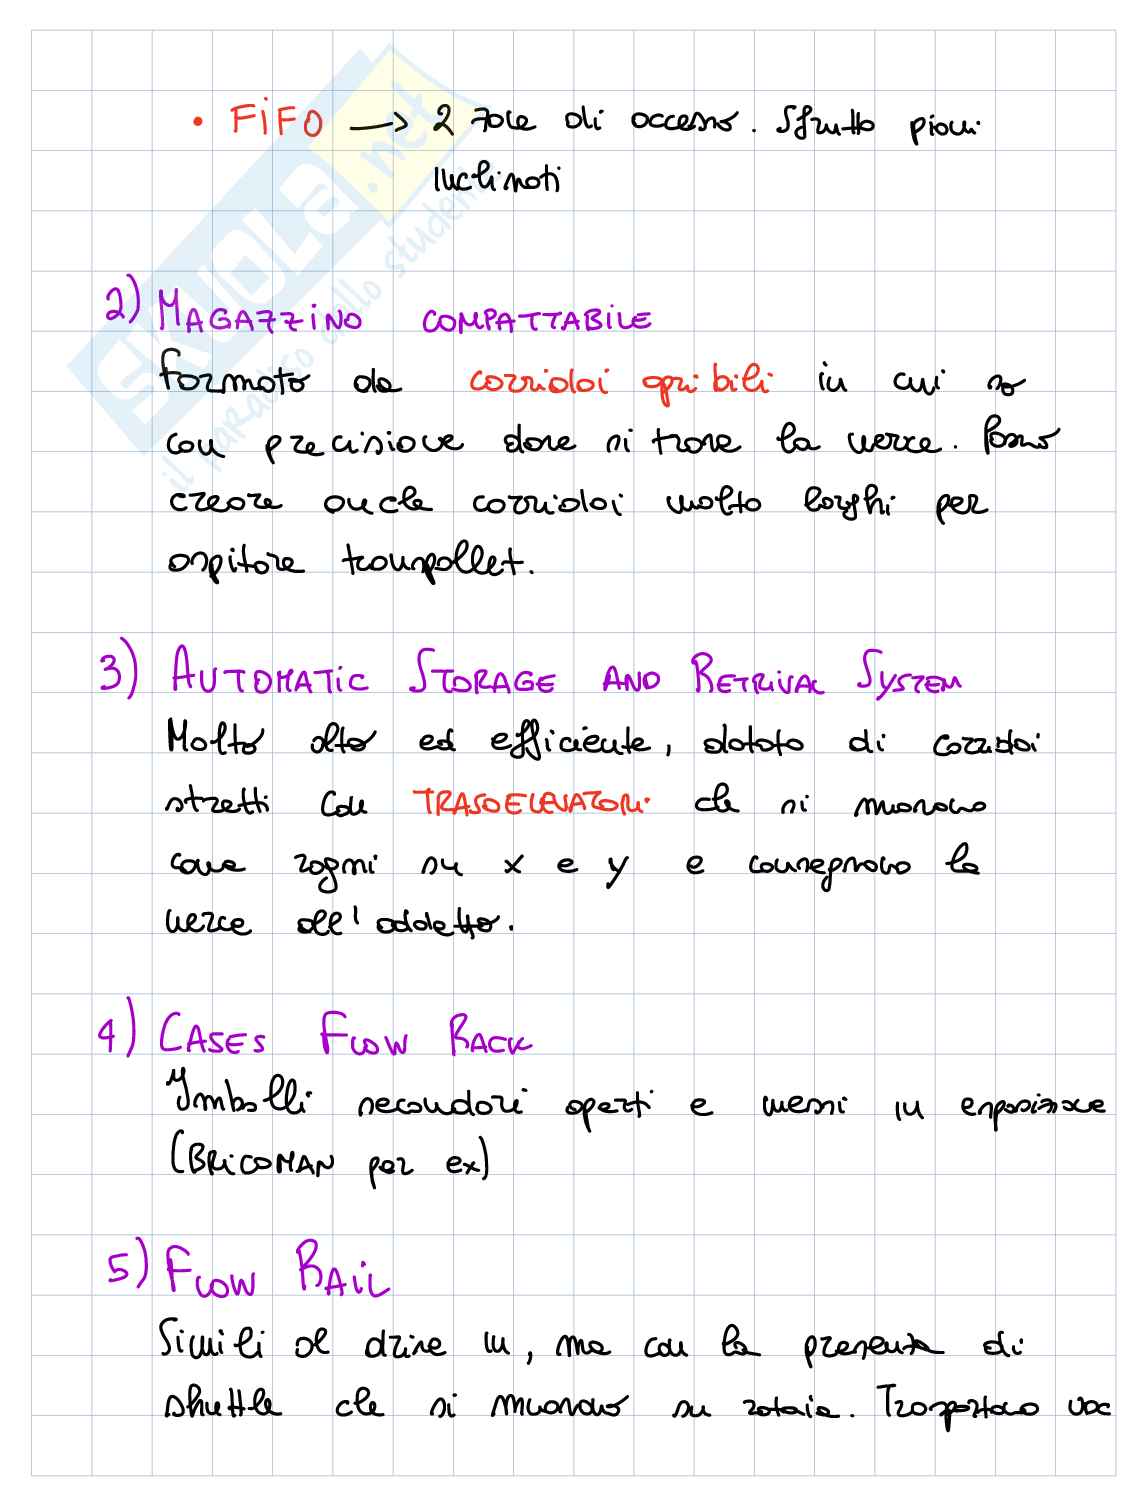 • FiFO → 2 zone di accesso. Sfrutto piani
inclinati
2) MAGAZZiNO COMPATTABILE
formato da corridoi apribili in cui so
con precisione dove si trova la merce. Posso
creare anche corridoi molto larghi per
ospitare transpallet.
3) AUTOMATiC STORAGE AND RETRIVAL SYSTEM
Molto alto ed efficiente, dotato di corridoi
stretti con TRASOELEVATORI che si muovono
come ragni su x e y e consegnano la
merce all'addetto.
4) CASES FLOW RACK
Imballi secondari aperti e messi in esposizione
(BRiCOMAN per ex)
5) FLOW RAiL
Simili al drive in, ma con la presenza di
shuttle che si muovono su rotaia. Trasportano
SKUOLA.net
il paradiso dello studente